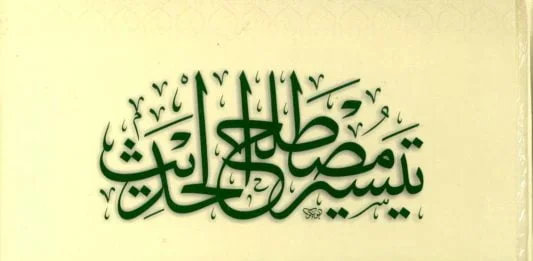 تيسير مصطلح الحديث